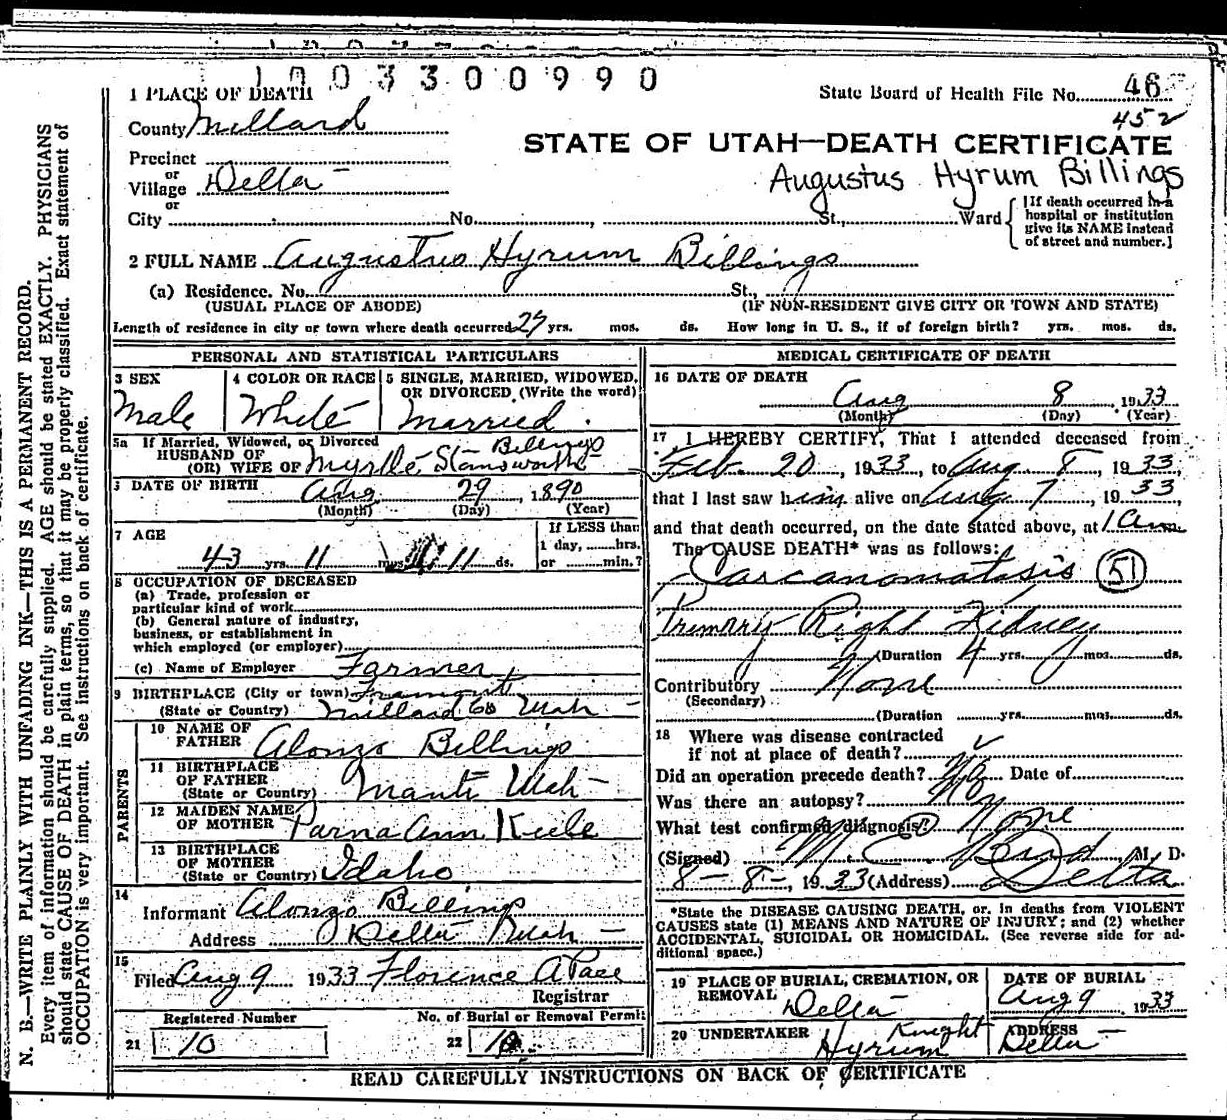 1 7 0 3 3 0 0 9 9 0
1 PLACE OF DEATH
State Board of Health File No. 46
452
County Millard
STATE OF UTAH—DEATH CERTIFICATE
Precinct
Augustus Hyrum Billings
or
Village Delta
or
City No. St., Ward
[If death occurred in a
hospital or institution
give its NAME instead
of street and number.]
2 FULL NAME Augustus Hyrum Billings
(a) Residence. No. St.,
(USUAL PLACE OF ABODE) (IF NON-RESIDENT GIVE CITY OR TOWN AND STATE)
Length of residence in city or town where death occurred 27 yrs. mos. ds. How long in U. S., if of foreign birth? yrs. mos. ds.
PERSONAL AND STATISTICAL PARTICULARS
3 SEX
Male
4 COLOR OR RACE
White
5 SINGLE, MARRIED, WIDOWED,
OR DIVORCED (Write the word)
Married
5a If Married, Widowed, or Divorced
HUSBAND OF Billings
(OR) WIFE OF Myrtle Stansworth
DATE OF BIRTH Aug 29, 1890
(Month) (Day) (Year)
7 AGE
43 yrs. 11 mos. 11 ds.
If LESS than
1 day, hrs.
or min.?
8 OCCUPATION OF DECEASED
(a) Trade, profession or
particular kind of work
(b) General nature of industry,
business, or establishment in
which employed (or employer)
(c) Name of Employer Farmer
9 BIRTHPLACE (City or town) Fremont
(State or Country) Millard Co Utah
PARENTS
10 NAME OF
FATHER Alonzo Billings
11 BIRTHPLACE
OF FATHER
(State or Country) Manti Utah
12 MAIDEN NAME
OF MOTHER Parna Ann Keele
13 BIRTHPLACE
OF MOTHER
(State or Country) Idaho
14
Informant Alonzo Billings
Address Delta Utah
15
Filed Aug 9 1933 Florence A Pace
Registrar
Registered Number
21 10
No. of Burial or Removal Permit
22 10
MEDICAL CERTIFICATE OF DEATH
16 DATE OF DEATH
Aug 8 1933
(Month) (Day) (Year)
17 I HEREBY CERTIFY, That I attended deceased from
Feb 20, 1933, to Aug 8, 1933,
that I last saw him alive on Aug 7, 1933
and that death occurred, on the date stated above, at 1 am.
The CAUSE DEATH* was as follows:
Carcanomatosis 51
Primary Right Kidney
(Duration 4 yrs. mos. ds.
Contributory None
(Secondary)
(Duration yrs. mos. ds.
18 Where was disease contracted
if not at place of death?
Did an operation precede death? No Date of
Was there an autopsy? No
What test confirmed diagnosis? None
(Signed) M. C. Bird M. D.
8-8-, 1933 (Address) Delta
*State the DISEASE CAUSING DEATH, or, in deaths from VIOLENT
CAUSES state (1) MEANS AND NATURE OF INJURY; and (2) whether
ACCIDENTAL, SUICIDAL OR HOMICIDAL. (See reverse side for ad-
ditional space.)
19 PLACE OF BURIAL, CREMATION, OR
REMOVAL Delta
DATE OF BURIAL
Aug 9 1933
20 UNDERTAKER Hyrum Knight
ADDRESS
Delta
READ CAREFULLY INSTRUCTIONS ON BACK OF CERTIFICATE
N. B.—WRITE PLAINLY WITH UNFADING INK—THIS IS A PERMANENT RECORD.
Every item of information should be carefully supplied. AGE should be stated EXACTLY. PHYSICIANS
should state CAUSE OF DEATH in plain terms, so that it may be properly classified. Exact statement of
OCCUPATION is very important. See instructions on back of certificate.